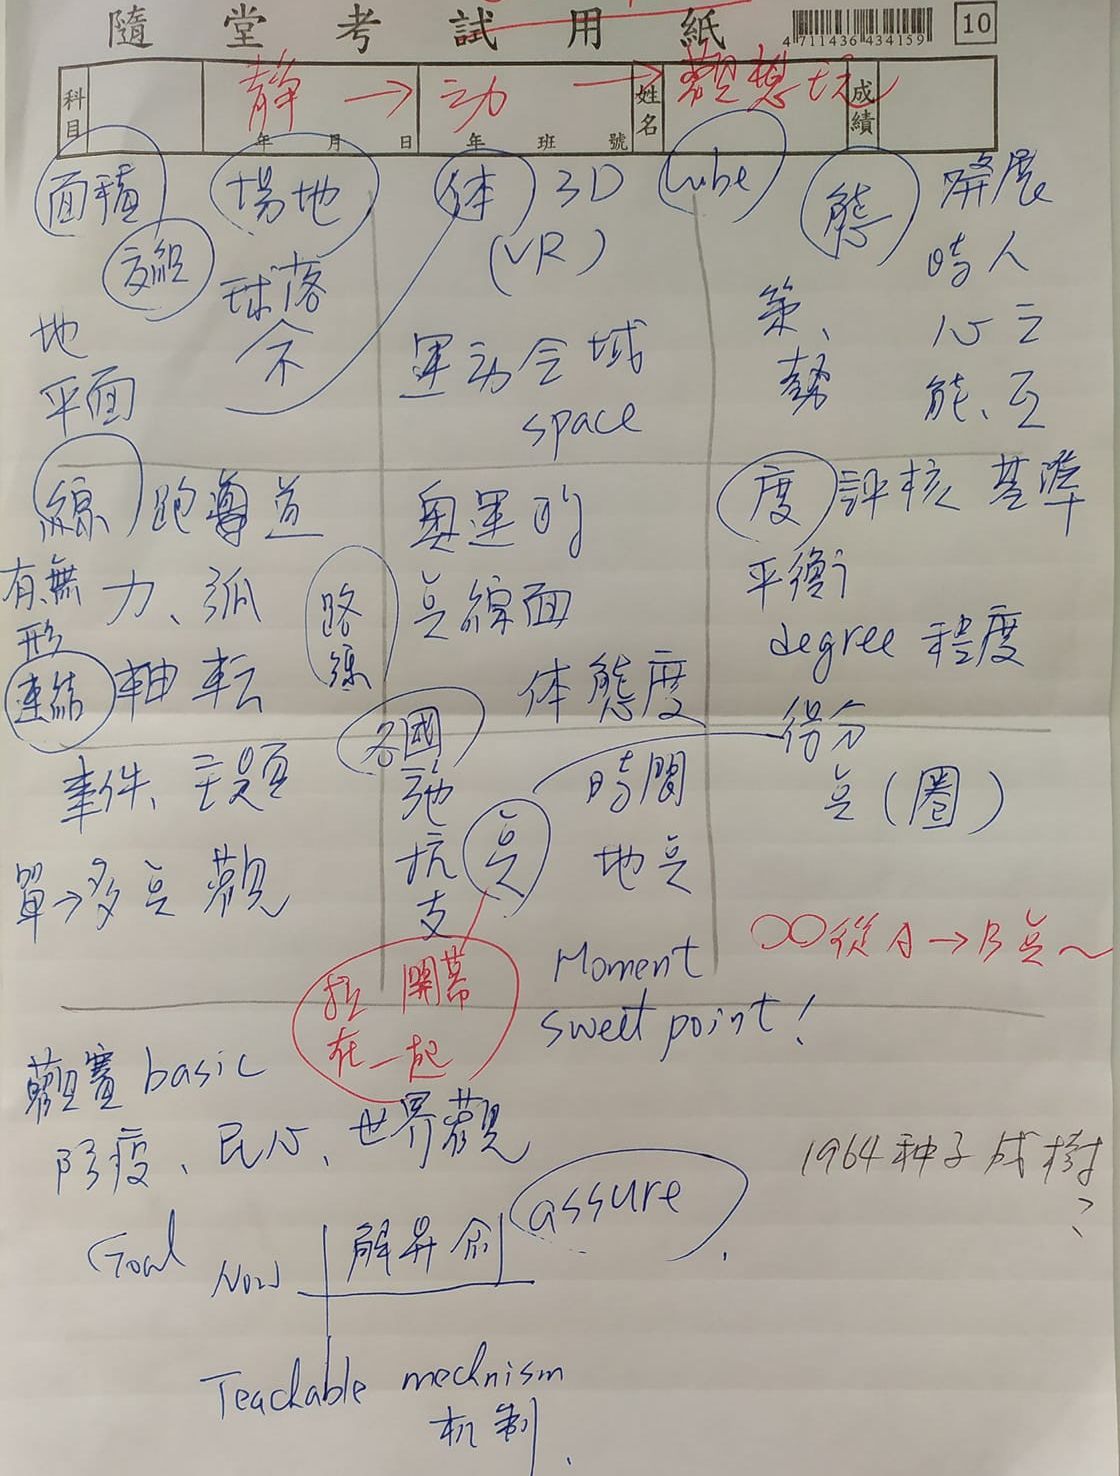 隨堂考試用紙
4711436434159
10
科目
年 月 日
年 班 號
姓名
成績
靜 → 动 → 觀想
面積
場地
球落
地
平面
体 3D
(VR)
運动
域
space
cube
態
開展
時人
心之
能、互
策、
勢
線 跑道
有、無
形
力、弧
連結
軸転
路線
奧運的
线面
体態度
度 評核 基準
平衡
degree 程度
得分
(圈)
事件、主題
單→多 觀
各國
弛
抗
支
時間
地
Moment
sweet point!
〇〇從A→B ~
拉 開幕
在一起
觀賽 basic
防疫、民心、世界觀
1964 种子成樹
Goal
Now
解昇
assure
Teachable mechnism
机制.